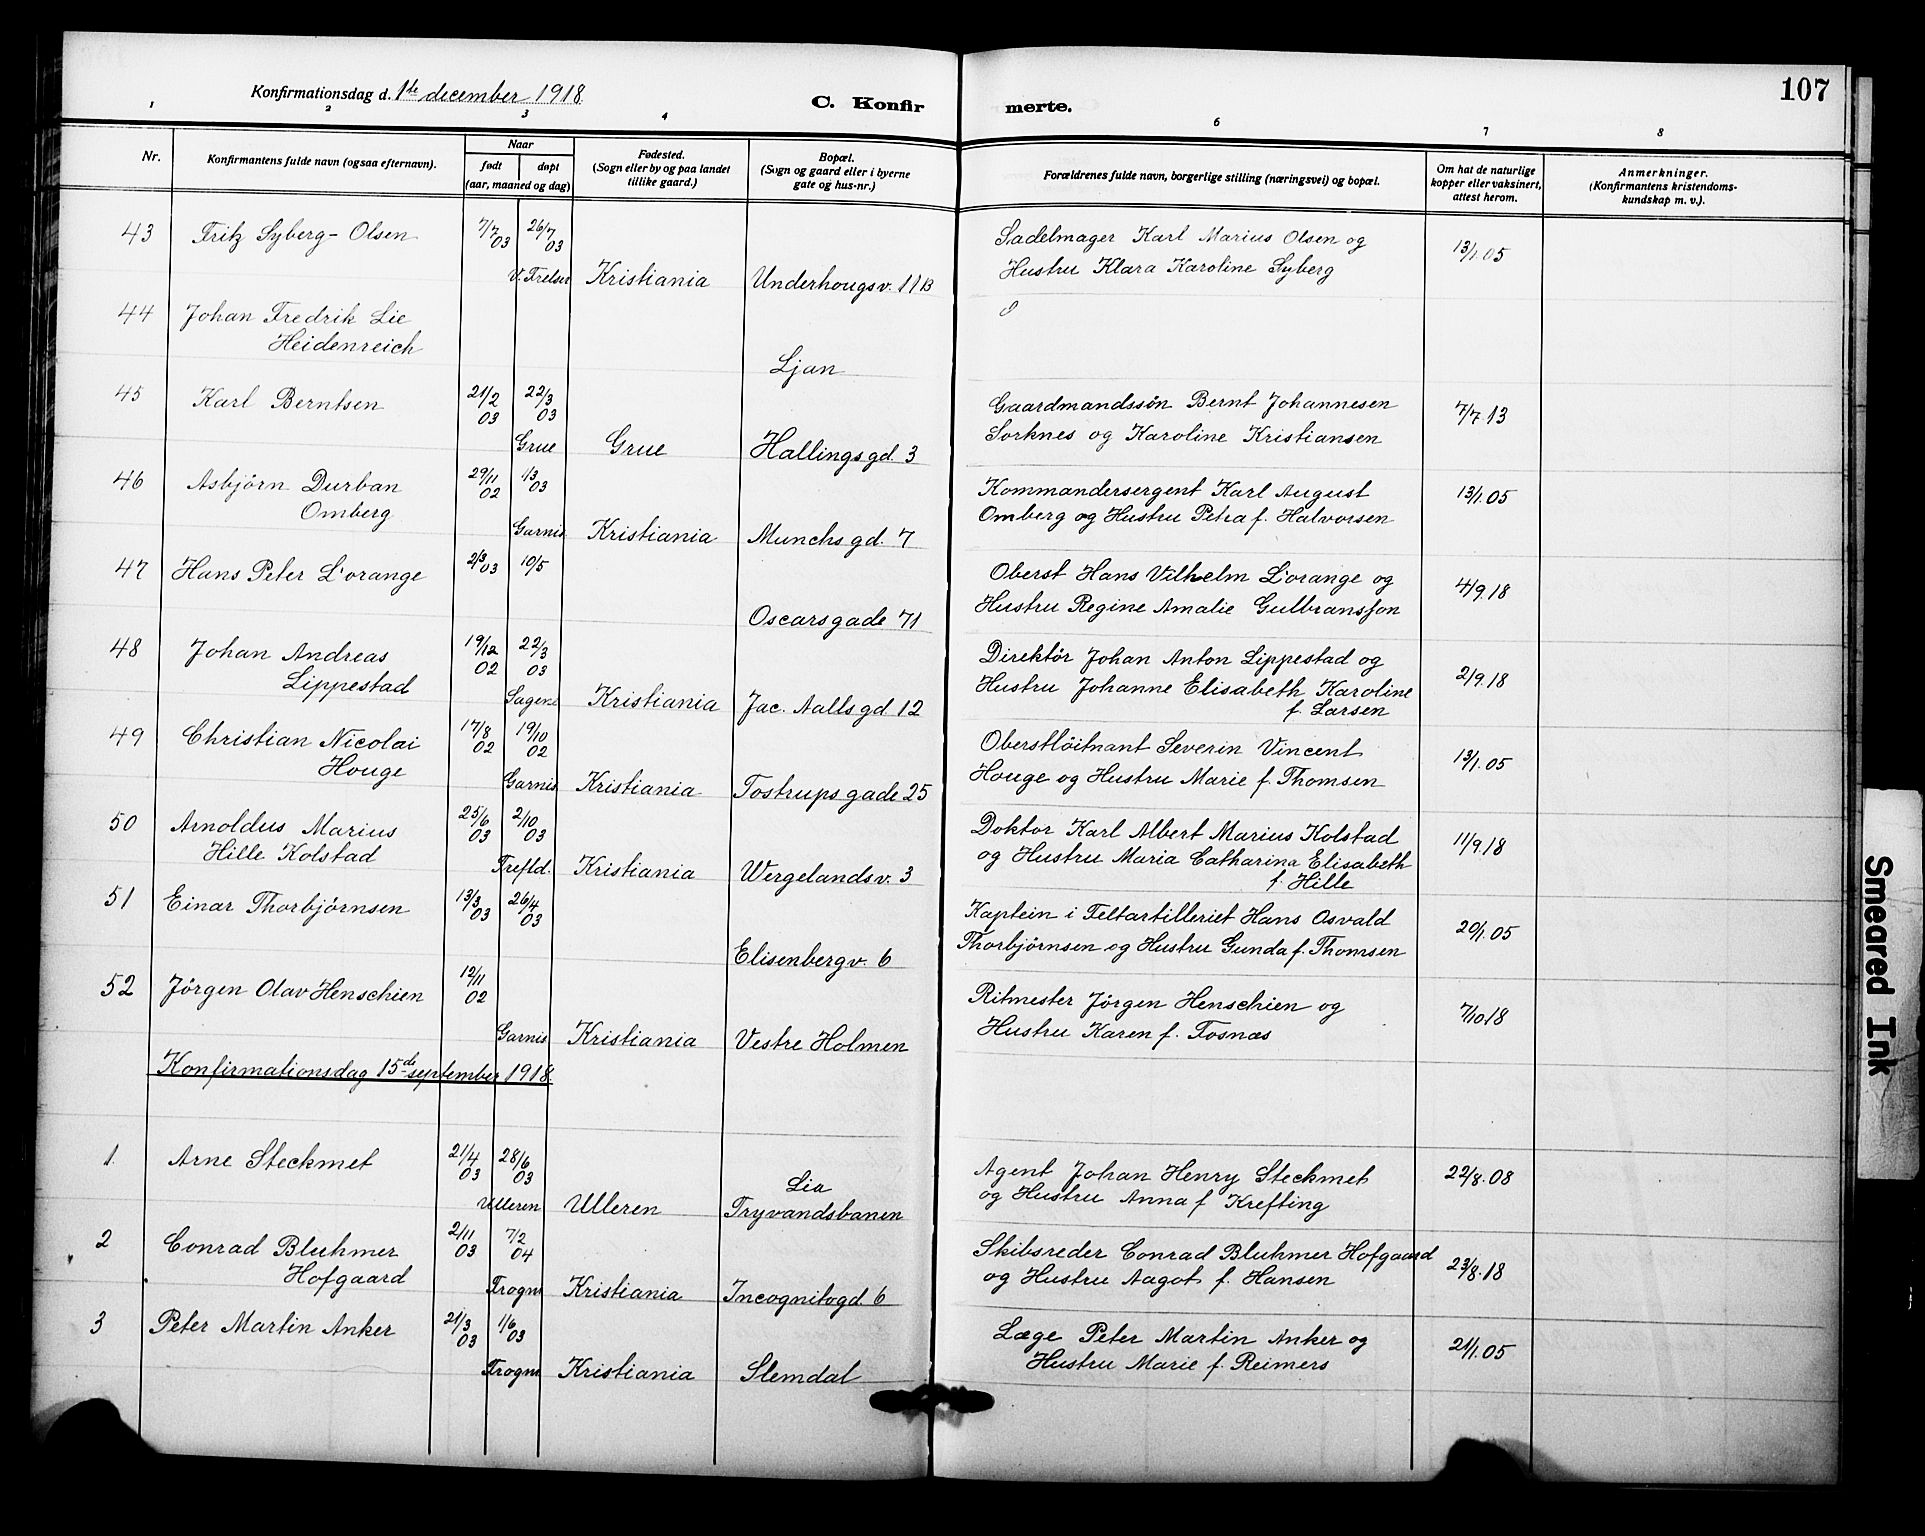 107
Konfirmationsdag d. 1ste december 1918
C. Konfir merte.
1 2 3 4 6 7 8
Nr.
Konfirmantens fulde navn (ogsaa efternavn).
Naar
født døpt
(aar, maaned og dag)
Fødested.
(Sogn eller by og paa landet
tillike gaard.)
Bopæl.
(Sogn og gaard eller i byerne
gate og hus-nr.)
Forældrenes fulde navn, borgerlige stilling (næringsvei) og bopæl.
Om hat de naturlige
kopper eller vaksinert,
attest herom.
Anmerkninger.
(Konfirmantens kristendoms-
kundskap m. v.).
43 Fritz Syberg-Olsen 7/7 03 26/7 03 Sadelmager Karl Marius Olsen og 13/1.05
V. Frelser Kristiania Underhougsv. 11B Hustru Klara Karoline Syberg
44 Johan Fredrik Lie
Heidenreich
Ljan
45 Karl Berntsen 21/2 03 22/3 03 Gaardmandssön Bernt Johannesen 7/7.13
Grue Grue Hallingsgd. 3 Sorknes og Karoline Kristiansen
46 Asbjörn Durban 29/11 02 1/3 03 Kommandersergent Karl August 13/1.05
Omberg Omberg og Hustru Petra f. Halvorsen
Garnis. Kristiania Munchsgd. 7
47 Hans Peter L'orange 2/3 03 10/5 Oberst Hans Vilhelm L'orange og 4/9.18
Oscarsgade 71 Hustru Regine Amalie Gulbransson
48 Johan Andreas 19/12 02 22/3 03 Direktör Johan Anton Lippestad og 2/9.18
Lippestad Hustru Johanne Elisabeth Karoline
Sagene Kristiania Jac. Aallsgd. 12 f. Larsen
49 Christian Nicolai 17/8 02 19/10 02 Oberstlöitnant Severin Vincent 13/1.05
Houge Houge og Hustru Marie f. Thomsen
Garnis. Kristiania Tostrupsgade 25
50 Arnoldus Marius 25/6 03 2/10 03 Doktor Karl Albert Marius Kolstad 11/9.18
Hille Kolstad og Hustru Maria Catharina Elisabeth
Trefld. Kristiania Wergelandsv. 3 f. Hille
51 Einar Thorbjörnsen 13/3 03 26/4 03 Kaptein i Feltartilleriet Hans Osvald 20/1.05
Elisenbergv. 6 Thorbjörnsen og Hustru Gunda f. Thomsen
52 Jörgen Olav Henschien 12/11 02 Ritmester Jörgen Henschien og 7/10.18
Garnis Kristiania Vestre Holmen Hustru Karen f. Fosnæs
Konfirmationsdag 15de september 1918.
1. Arne Steckmet 21/4 03 28/6 03 Agent Johan Henry Steckmet 22/8.08
Lia og Hustru Anna f Krefting
Ulleren Ulleren Tryvandsbanen
2 Conrad Bluhmer 2/11 03 7/2 04 Skibsreder Conrad Bluhmer Hofgaard 23/8.18
Hofgaard og Hustru Aagot f. Hansen
Frogn Kristiania Incognitogd. 6
3 Peter Martin Anker 21/3 03 1/6 03 Læge Peter Martin Anker og 21/1.05
Frogn Kristiania Slemdal Hustru Marie f. Reimers
Smeared Ink